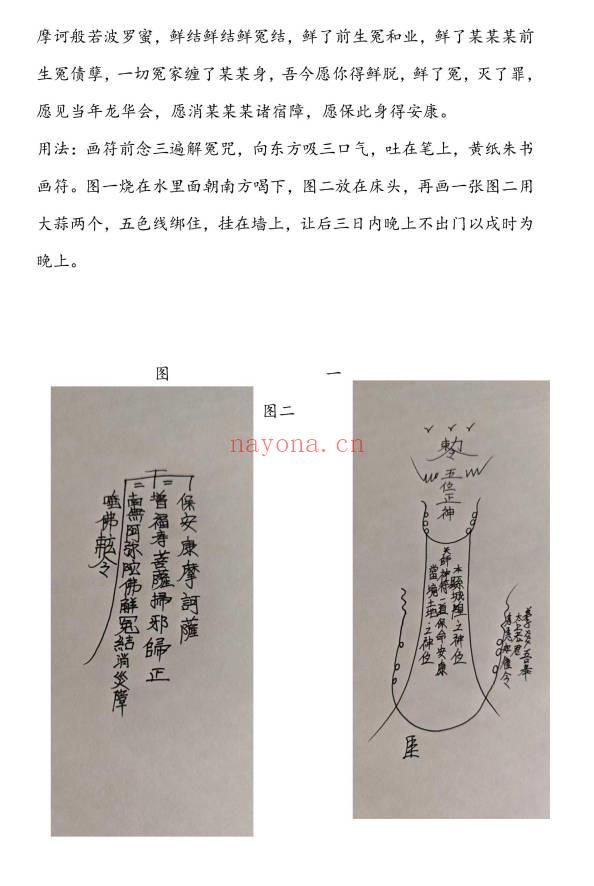 摩诃般若波罗蜜，鲜结鲜结鲜冤结，鲜了前生冤和业，鲜了某某某前
生冤债孽，一切冤家缠了某某身，吾今愿你得鲜脱，鲜了冤，灭了罪，
愿见当年龙华会，愿消某某某诸宿障，愿保此身得安康。
用法：画符前念三遍解冤咒，向东方吸三口气，吐在笔上，黄纸朱书
画符。图一烧在水里面朝南方喝下，图二放在床头，再画一张图二用
大蒜两个，五色线绑住，挂在墙上，让后三日内晚上不出门以戌时为
晚上。
图 一
图二
nayona.cn
保安康摩訶薩
普福寺菩薩掃邪歸正
南無阿弥陀佛解冤結消災障
唵佛
令
勅令
五位正神
本縣城隍之神位
天師神符一道保命安康
當境土地之神位